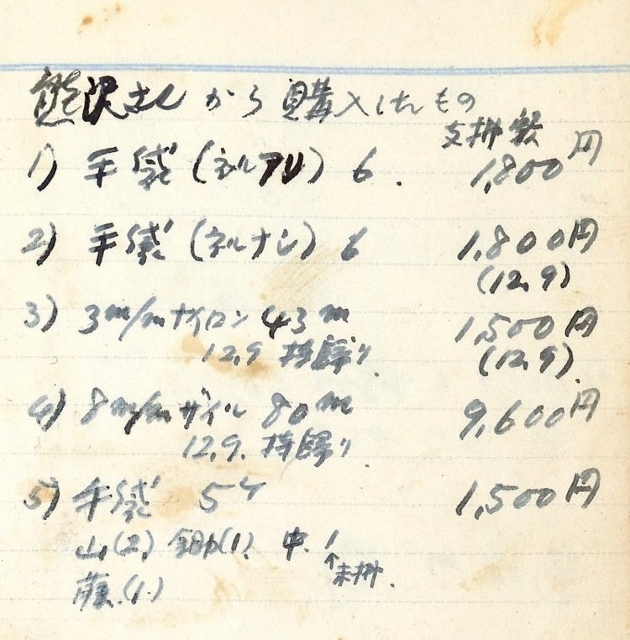 熊沢さんから購入したもの
支払額
1) 手袋(ネルアリ) 6. 1,800円
2) 手袋(ネルナシ) 6 1,800円
(12.9)
3) 3m/mナイロン 43m 1,500円
12.9 持帰り. (12.9).
4) 8m/mザイル 80m 9,600円
12.9. 持帰り
5) 手袋 5ケ 1,500円
山(2) (1). 中.1
↑未払.
(1.)